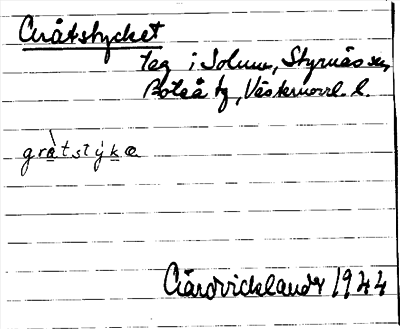 Gråtstycket
teg i Solum, Styrnäs sn,
Boteå tg, Västernorrl. l.
gràtstýkə
Gårdvicklander 1944